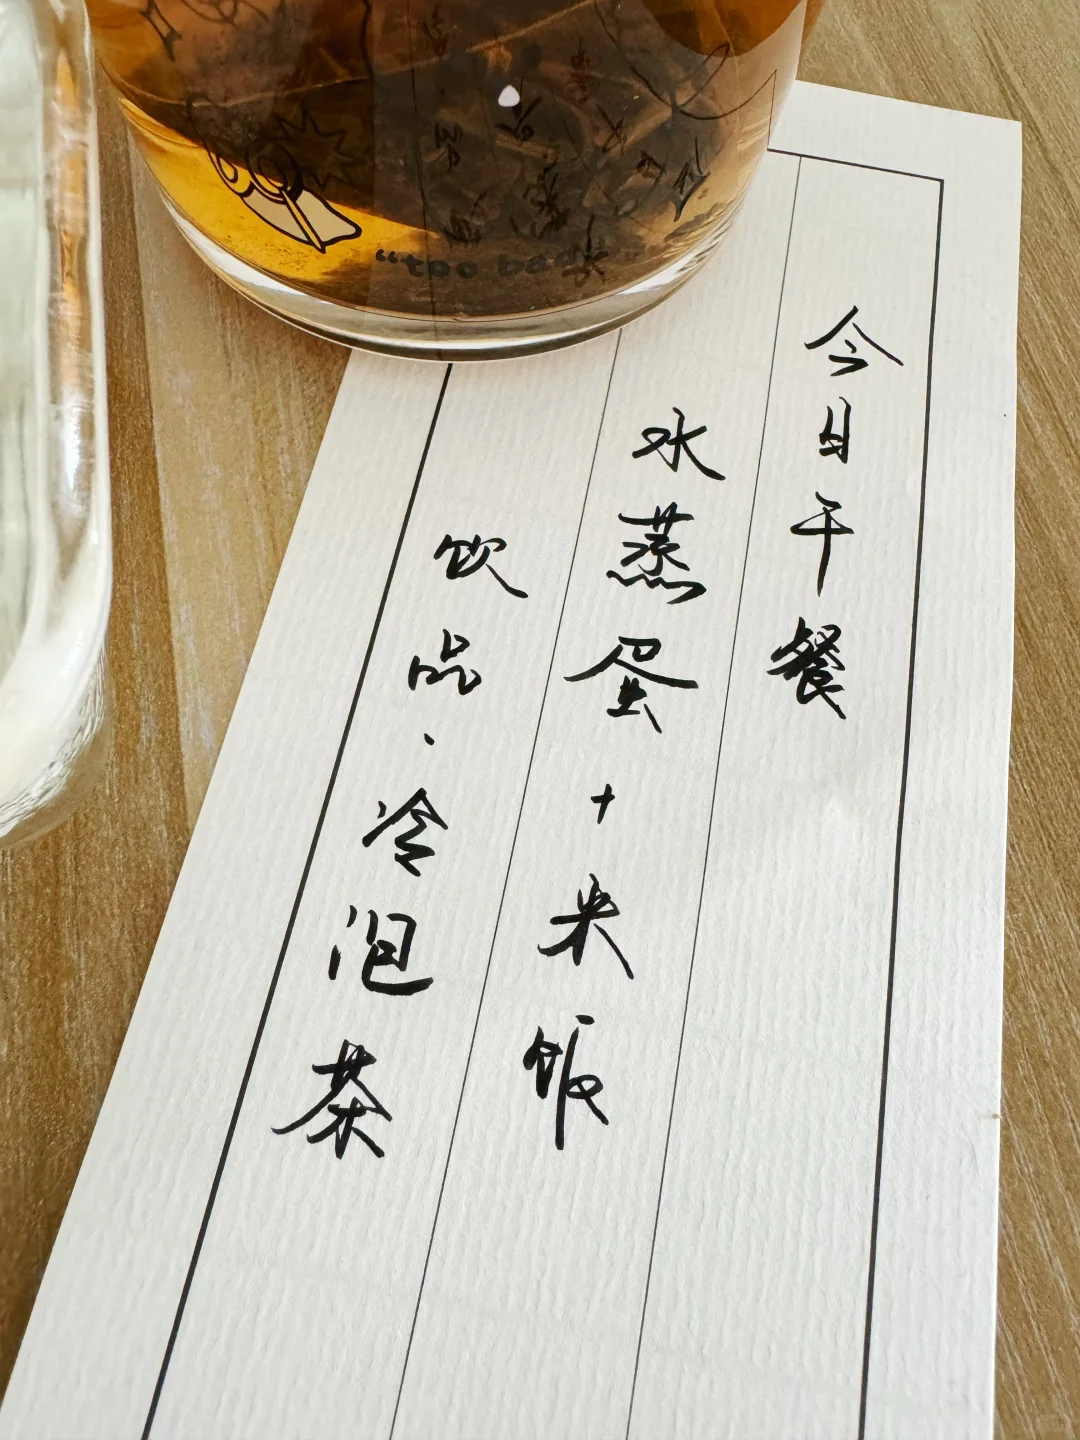 今日午餐
水蒸蛋+米饭
饮品·冷泡茶
"too bad